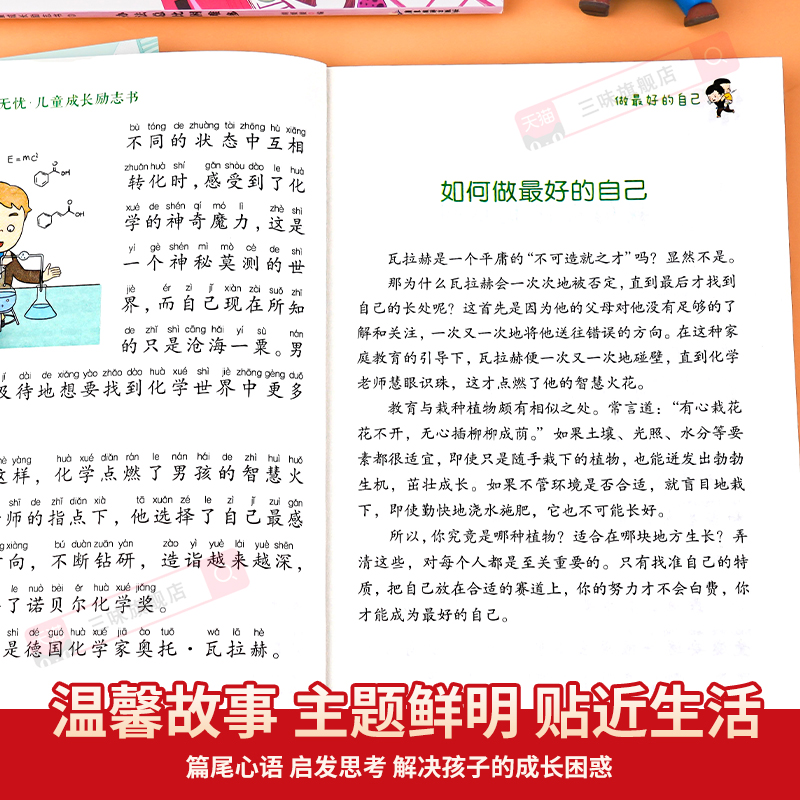 无忧·儿童成长励志书
E=mc²
OH
OH
bù tóng de zhuàng tài zhōng hù xiāng
不同的状态中互相
zhuǎn huà shí gǎn shòu dào le huà
转化时,感受到了化
xué de shén qí mó lì zhè shì
学的神奇魔力,这是
yí gè shén mì mò cè de shì
一个神秘莫测的世
jiè ér zì jǐ xiàn zài suǒ zhī
界,而自己现在所知
de zhǐ shì cāng hǎi yí sù nán
的只是沧海一粟。男
jí dài de xiǎng yào zhǎo dào huà xué shì jiè zhōng gèng duō
及待地想要找到化学世界中更多
yàng huà xué diǎn rán le nán hái de zhì huì huǒ
这样,化学点燃了男孩的智慧火
shī de zhǐ diǎn xià tā xuǎn zé le zì jǐ zuì gǎn
师的指点下,他选择了自己最感
xiàng bú duàn zuān yán zào yì yuè lái yuè shēn
向,不断钻研,造诣越来越深,
le nuò bèi ěr huà xué jiǎng
了诺贝尔化学奖。
shì dé guó huà xué jiā ào tuō wǎ lā hè
是德国化学家奥托·瓦拉赫。
做最好的自己
如何做最好的自己
瓦拉赫是一个平庸的“不可造就之才”吗?显然不是。
那为什么瓦拉赫会一次次地被否定,直到最后才找到
自己的长处呢?这首先是因为他的父母对他没有足够的了
解和关注,一次又一次地将他送往错误的方向。在这种家
庭教育的引导下,瓦拉赫便一次又一次地碰壁,直到化学
老师慧眼识珠,这才点燃了他的智慧火花。
教育与栽种植物颇有相似之处。常言道:“有心栽花
花不开,无心插柳柳成荫。”如果土壤、光照、水分等要
素都很适宜,即使只是随手栽下的植物,也能迸发出勃勃
生机,茁壮成长。如果不管环境是否合适,就盲目地栽
下,即使勤快地浇水施肥,它也不可能长好。
所以,你究竟是哪种植物?适合在哪块地方生长?弄
清这些,对每个人都是至关重要的。只有找准自己的特
质,把自己放在合适的赛道上,你的努力才不会白费,你
才能成为最好的自己。
天猫 三味旗舰店
三味旗舰店
温馨故事 主题鲜明 贴近生活
篇尾心语 启发思考 解决孩子的成长困惑